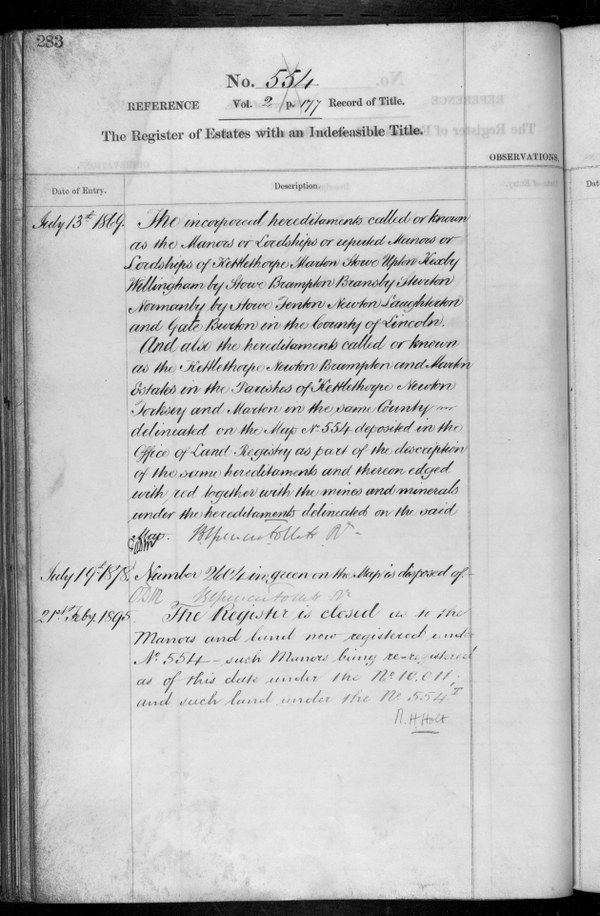 283
No. 554
REFERENCE Vol. 2 p. 177 Record of Title.
The Register of Estates with an Indefeasible Title.
OBSERVATIONS.
Date of Entry. Description.
July 13th 1869. The incorporeal hereditaments called or known
as the Manors or Lordships or reputed Manors or
Lordships of Kettlethorpe Marton Stowe Upton Kexby
Willingham by Stowe Brampton Bransby Sturton
Normanby by Stowe Fenton Newton Laughterton
and Gate Burton in the County of Lincoln.
And also the hereditaments called or known
as the Kettlethorpe Newton Brampton and Marton
Estates in the Parishes of Kettlethorpe Newton
Torksey and Marton in the same County
delineated on the Map No. 554 deposited in the
Office of Land Registry as part of the description
of the same hereditaments and thereon edged
with red together with the mines and minerals
under the hereditaments delineated on the said
Map. B Spencer Follett Rr.
July 19th 1878. Number 2604 in green on the Map is disposed of.
B Spencer Follett Rr
21st Feby. 1895. The Register is closed as to the
Manors and land now registered under
No. 554 - such Manors being re-registered
as of this date under the No.
and such land under the No. 554 I
R. H Holt